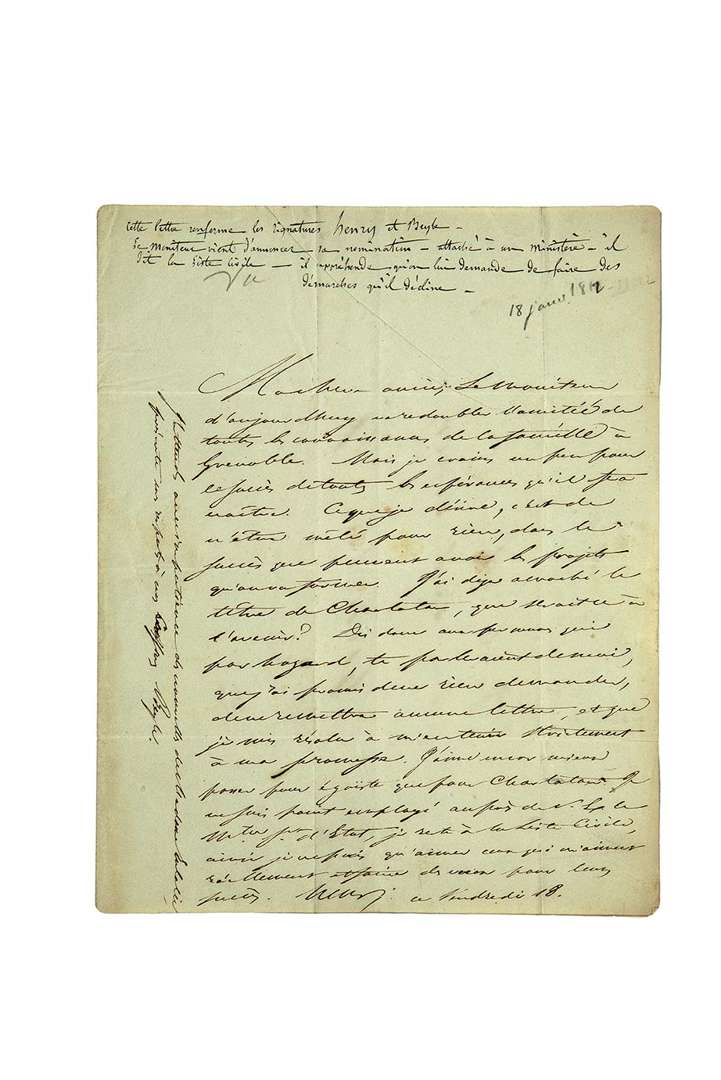 Cette lettre renferme les signatures henry et Beyle -
Le moniteur vient d'annoncer sa nomination - attaché à un ministère - il
dit la liste civile - il appréhende qu'on lui demande de faire des
démarches qu'il décline -
Vu
18 janv. 1812
Ma chère amie, Le Moniteur
d'aujourdhuy va redoubler l'amitié de
toutes les connaissances de la famille à
Grenoble. Mais je crains un peu pour
le succès de toutes les espérances qu'il fera
naitre. Ce que je désire, c'est de
n'être mêlé pour rien, dans le
succès que peuvent avoir les projets
qu'on va former. J'ai déja accroché le
titre de Charlatan, que serait-ce à
l'avenir? Dis donc aux personnes qui
par hazard, te parleraient de moi,
que j'ai promis de ne rien demander,
de ne remettre aucune lettre, et que
je suis résolu à m'en tenir strictement
à ma promesse. J'aime encor mieux
passer pour égoiste que pour Charlatan. Je
ne suis point employé auprès de S. Ex. le
M.tre S.re d'Etat, je reste à la Liste Civile,
ainsi je ne puis qu'aimer ceux qui m'aiment
réellement et faire des vœux pour leurs
succès. Henry. ce Vendredi 18.
J'attends avec impatience des nouvelles de Madame
présente mes respects à
Beyle.